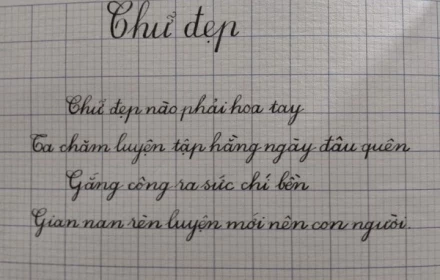 Chữ đẹp
Chữ đẹp nào phải hoa tay
Ta chăm luyện tập hằng ngày đâu quên
Gắng công ra sức chí bền
Gian nan rèn luyện mới nên con người.